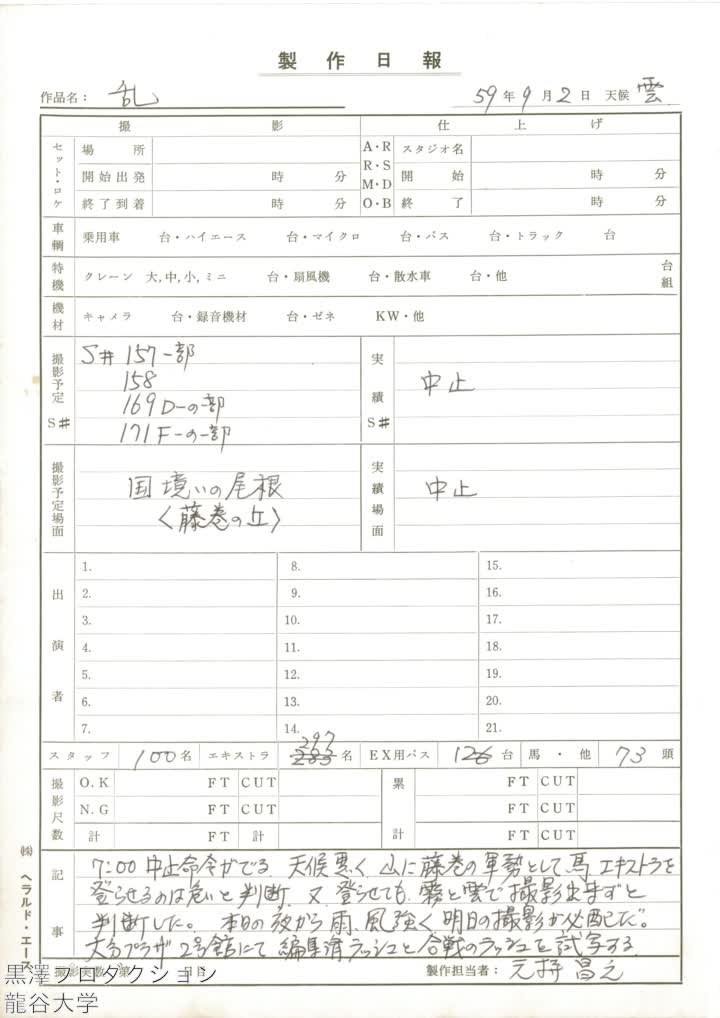 製作日報
作品名： 乱 59年9月2日 天候 雲
撮影 仕上げ
セット・ロケ 場所 A・R スタジオ名
開始出発 時 分 R・S M・D 開始 時 分
終了到着 時 分 O・B 終了 時 分
車輌 乗用車 台・ハイエース 台・マイクロ 台・バス 台・トラック 台
特機 クレーン 大,中,小,ミニ 台・扇風機 台・散水車 台・他 台組
機材 キャメラ 台・録音機材 台・ゼネ KW・他
撮影予定 S# S# 157一部 実績 S# 中止
158
169D一の部
171F一の一部
撮影予定場面 国境いの尾根 実績場面 中止
〈藤巻の丘〉
出演者
1. 8. 15.
2. 9. 16.
3. 10. 17.
4. 11. 18.
5. 12. 19.
6. 13. 20.
7. 14. 21.
297
スタッフ 100名 エキストラ 283名 EX用バス 12台 馬・他 73頭
撮影尺数 O.K FT CUT 累計 FT CUT
N.G FT CUT FT CUT
計 FT 計 FT CUT
記事
7:00 中止命令がでる 天候悪く、山に藤巻の軍勢として、馬 エキストラを
登らせるのは危いと判断、又 登らせても、霧と雲で撮影出来ずと
判断した。 本日の夜から雨、風強く 明日の撮影が心配だ。
大分プラザ 2号館にて 編集済ラッシュと合戦のラッシュを試写する
撮影実数 第 日目 製作担当者：
㈱ ヘラルド・エース
黒澤プロダクション
龍谷大学